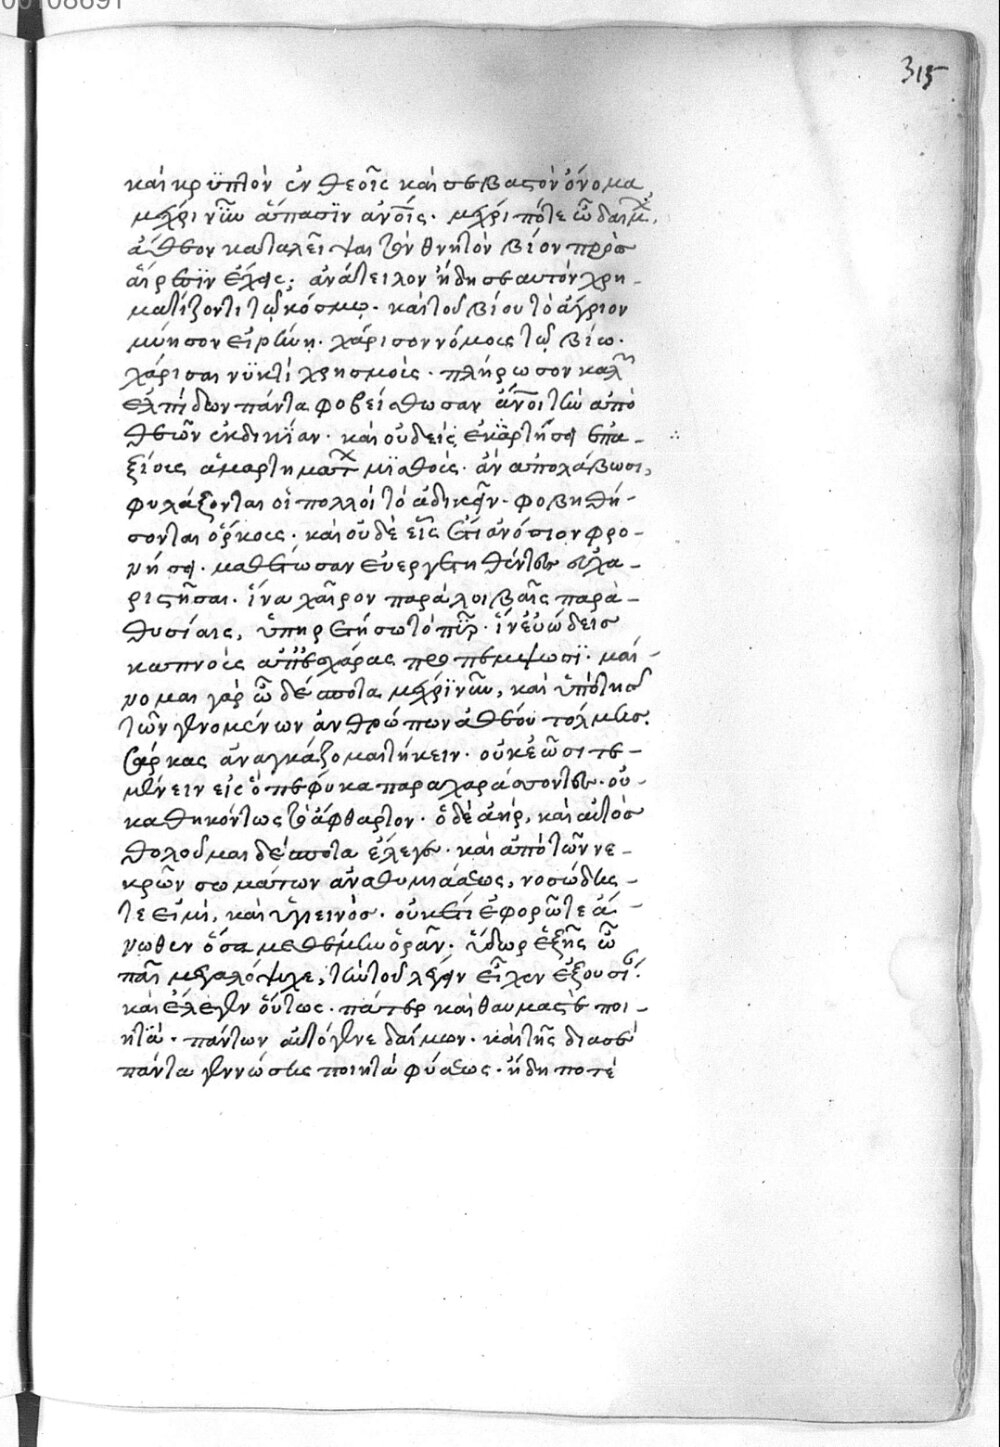 00108691
315
καὶ κρυπτὸν ἐν θεοῖς καὶ σεβαστὸν ὄνομα
μέχρι νῦν ἅπασϊν ἀνοῖς· μέχρι πότε ὦ δαῖμ
ἄθεον καταλεῖψαι τὸν θνητὸν βίον προ
αίρεσιν ἔχεις; ἀνάτειλον ἤδη σεαυτὸν χρη-
ματίζοντι τῷ κόσμῳ· καὶ τοῦ βίου τὸ ἄγριον
μύησον εἰρήνη· χάρισον νόμοις τῷ βίω·
χάρισαι νϋκτὶ χρησμοὶς· πλήρωσον καλῶν
ἐλπίδων πάντα φοβείσθωσαν ἄνοι τὴν ἀπὸ
θεῶν ἐκδικΐαν· καὶ οὐδεὶς
ξίοις ἁμαρτήματ μϊσθοὶς· ἂν ἀπολάβωσι,
φυλάξονται οἱ πολλοὶ τὸ ἀδικεῖν· φοβηθή-
σονται ὅρκοις· καὶ οὐδὲ εἷς ἔτι ἀνόσιον φρο-
νήσει· μαθέτωσαν εὐεργετηθέντες εὐχα-
ριστῆσαι· ἵνα χαῖρον παρὰ λοιβαῖς παρὰ-
θυσίαις, ὑπηρετήσω τὸ πῦρ· ἵν εὐώδεις
καπνοὺς ἀπ ἐσχάρας προπέμψωσϊ· μαί-
νομαι γὰρ ὦ δέσποτα μέχρϊ νῦν, καὶ ὑπὸ τῆς
τῶν γενομένων ἀνθρώπων ἀθέου τόλμης.
σάρκας ἀναγκάζομαι τήκειν· οὐκ ἐῶσί τε-
μένειν εἰς ὃ πέφυκα παραχαράσσοντες· οὐ-
καθηκόντως τὸ ἄφθαρτον· ὁ δὲ ἀὴρ, καὶ αὐτὸς
θολοῦμαι δέσποτα ἔλεγε· καὶ ἀπὸ τῶν νε-
κρῶν σωμάτων ἀναθυμιάσεως, νοσώδης-
τε εἰμὶ, καὶ ὑγιεινὸς· οὐκέτι ἐφορῶτε ἄ-
νωθεν ὅσα μὴ θέμις ὁρᾶν· ὕδωρ ἑξῆς ὦ
παῖ μεγαλόψυχε, τὴν τοῦ λέγειν εἶχεν ἐξουσί.
καὶ ἔλεγεν οὕτως· πάτερ καὶ θαυμαστὲ ποι-
ητὰ· πάντων αὐτόγονε δαίμων· καὶ τῆς διὰ σὲ
πάντα γεννώσης ποιητὰ φύσεως· ἤδη ποτὲ